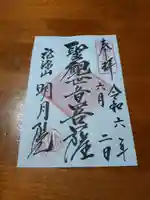 奉拝
令和六年
六月二日
聖観世音菩薩
明月院